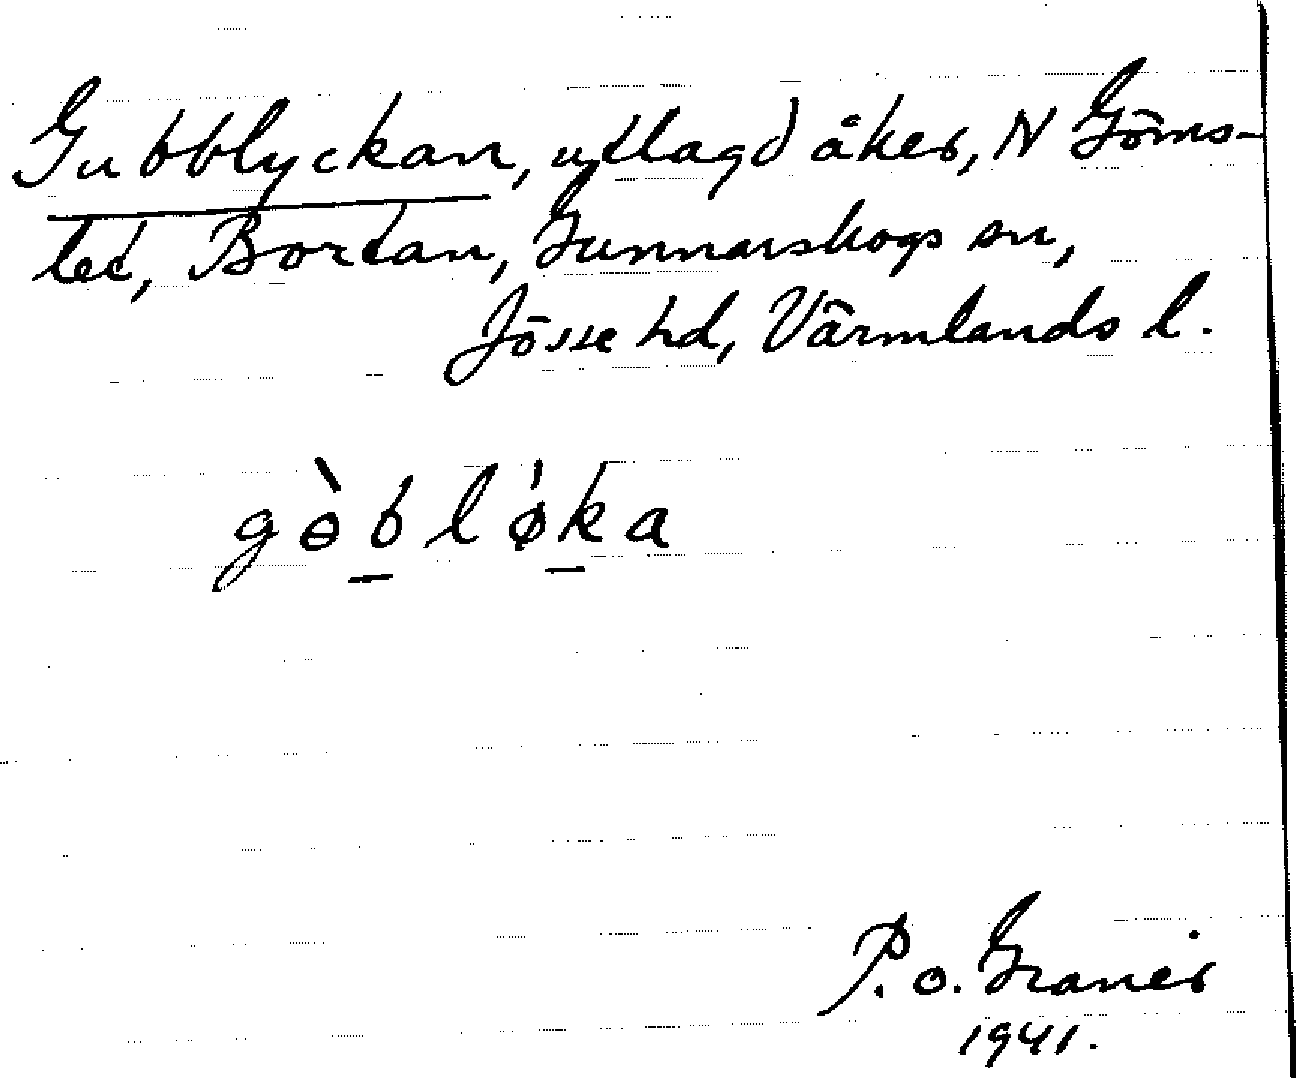 Gubblyckan, utlagd åker, N Göms-
led, Bortan, Gunnarskogs sn,
Jösse hd, Värmlands l.
gɵ̀b̲lø̍k̲a
P. O. Graner
1941.